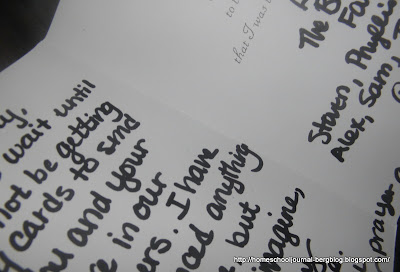 to
that I was
The B
Fa
Steven, Phyllis
Alex, Sam,
y.
wait until
not be getting
cards to send
ou and your
e in our
ers. I have
nced anything
e but
magine,
prayer
http://homeschooljournal-bergblog.blogspot.com/